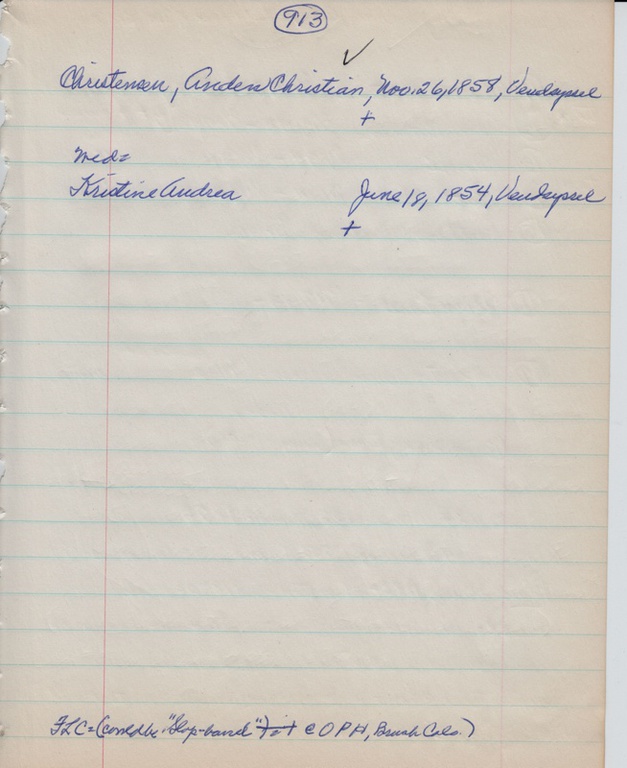 913
✓
Christensen, Anders Christian, Nov. 26, 1858, Vendsyssel
+
med=
Kristine Andrea June 18, 1854, Vendsyssel
+
FLC=(could be " " at EOPH, Brush Colo.)